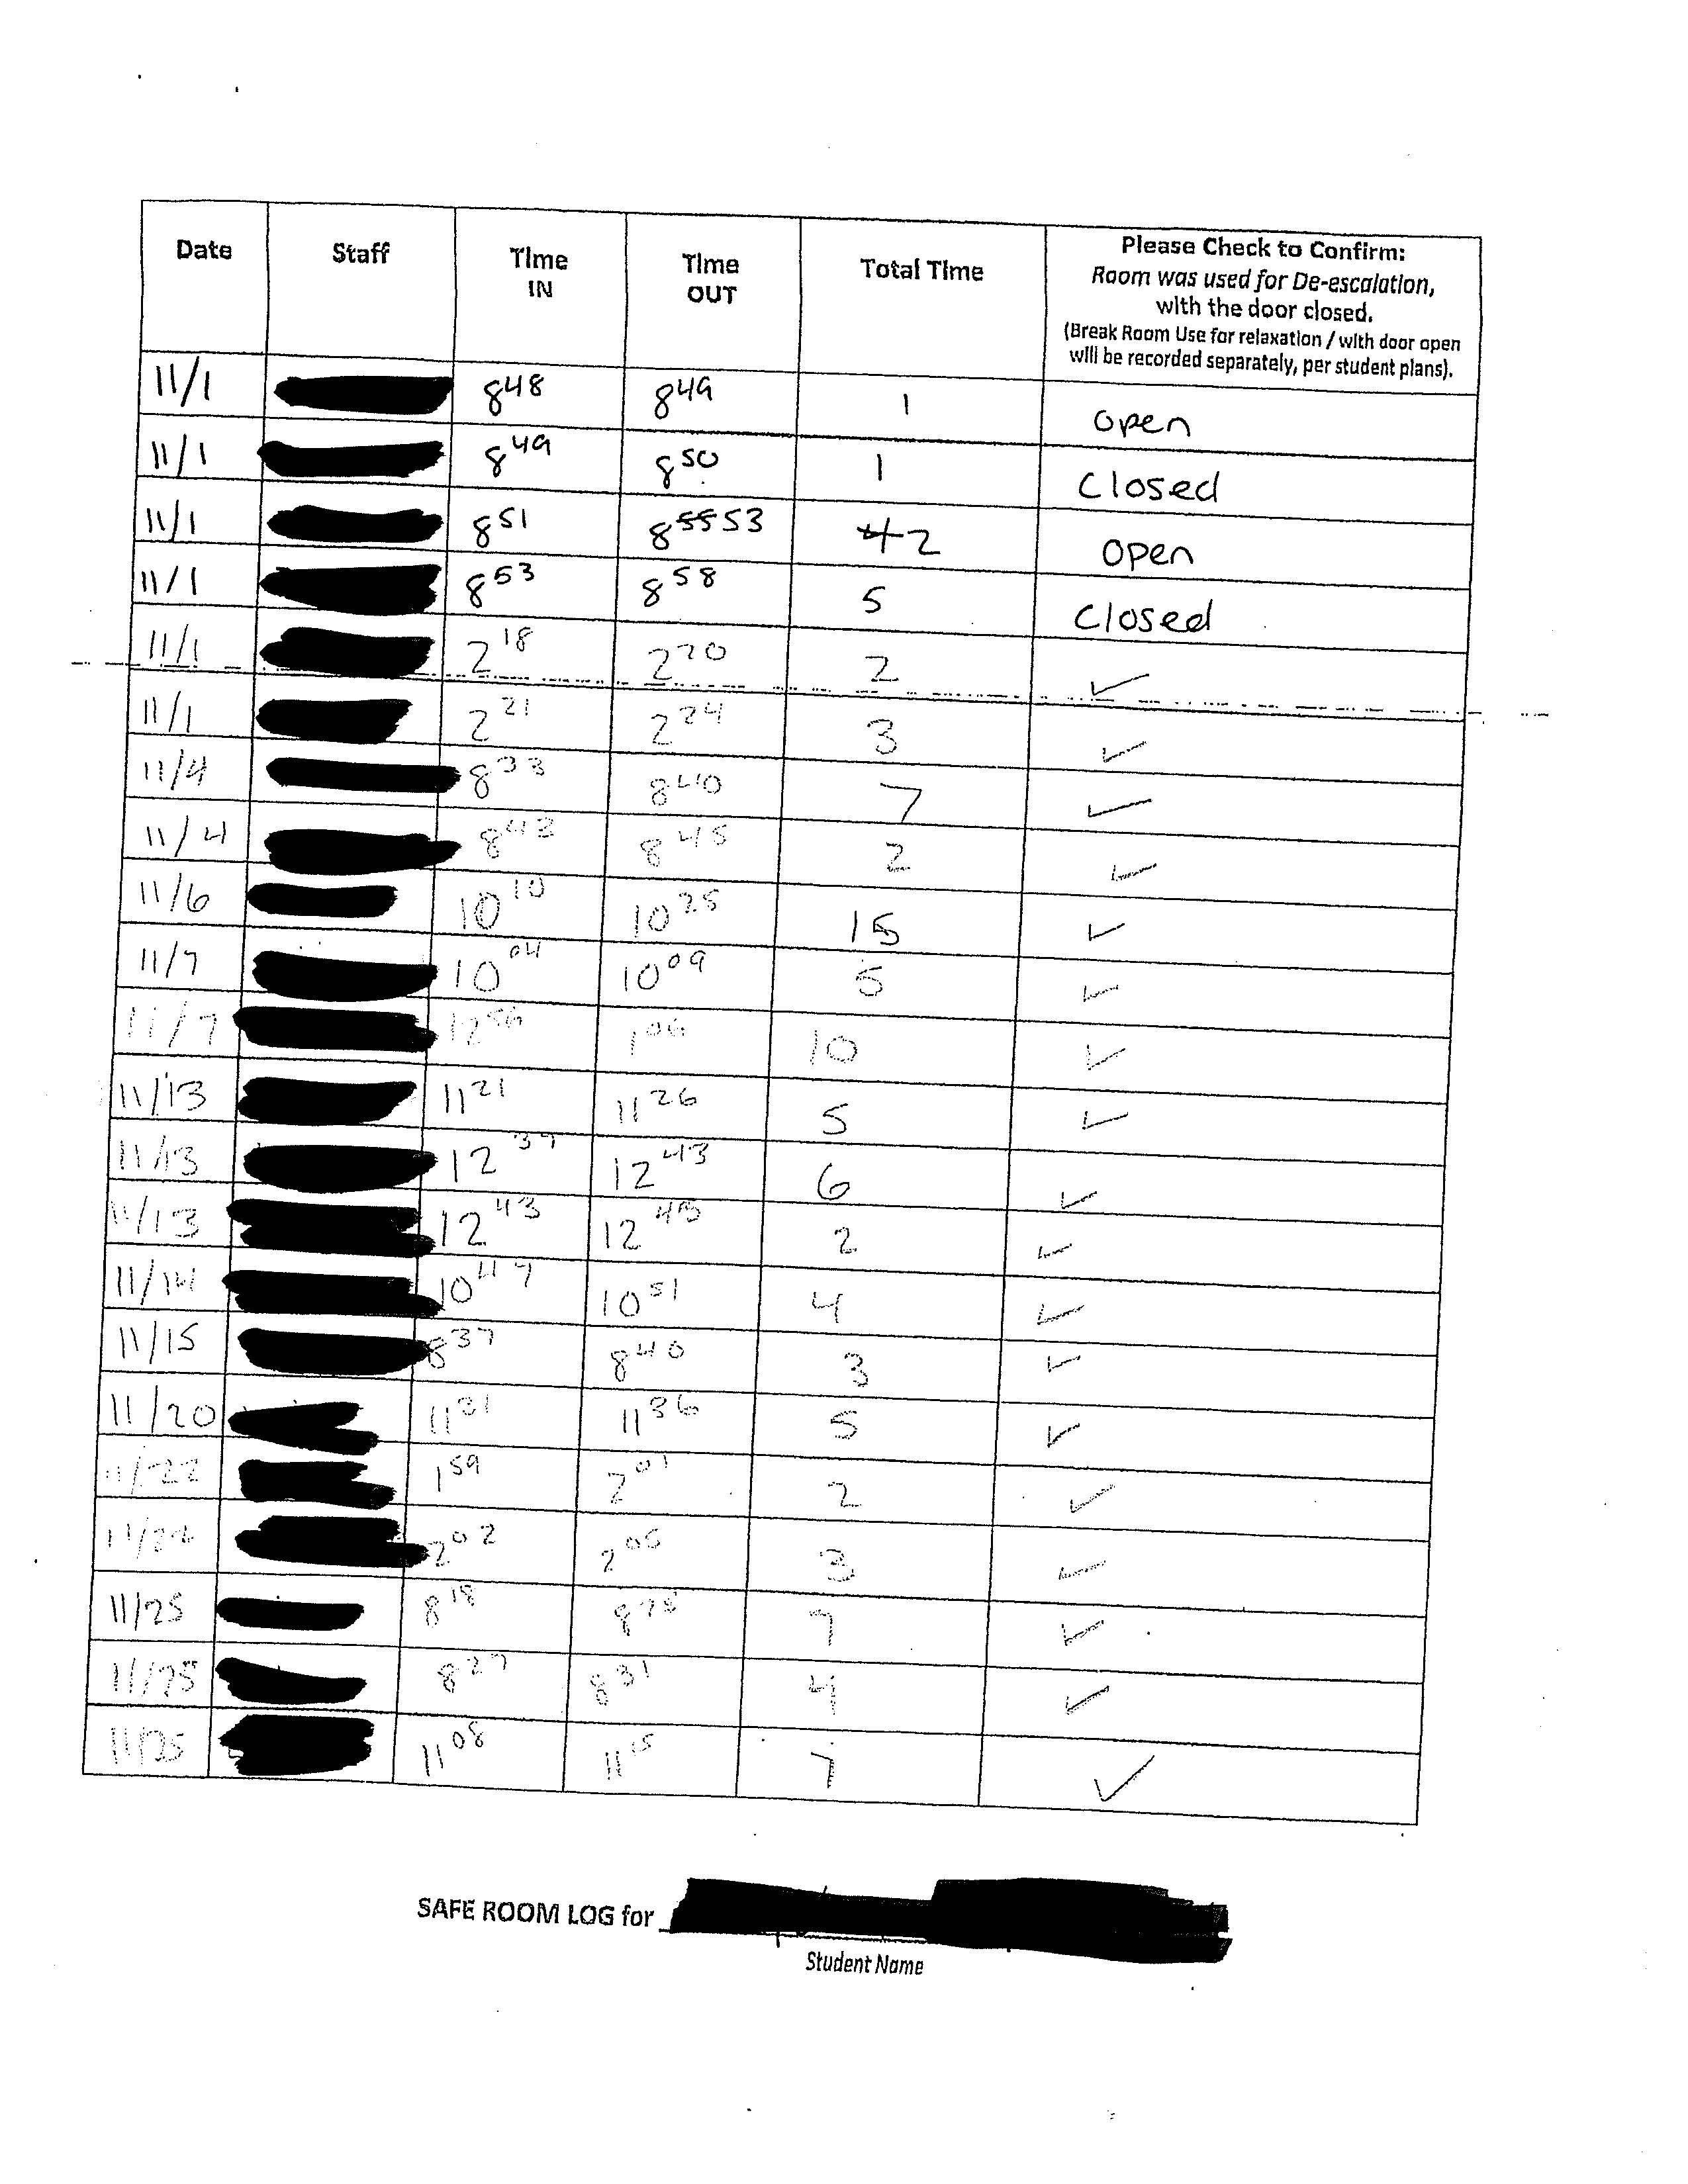 Date Staff Time IN Time OUT Total Time Please Check to Confirm: Room was used for De-escalation, with the door closed. (Break Room Use for relaxation / with door open will be recorded separately, per student plans).
11/1 8 48 8 49 1 open
11/1 8 49 8 50 1 closed
11/1 8 51 8 55 53 4 2 open
11/1 8 53 8 58 5 closed
11/1 2 18 2 20 2 ✓
11/1 2 21 2 24 3 ✓
11/4 8 33 8 40 7 ✓
11/4 8 43 8 45 2 ✓
11/6 10 10 10 25 15 ✓
11/7 10 04 10 09 5 ✓
11/7 12 56 1 06 10 ✓
11/13 11 21 11 26 5 ✓
11/13 12 37 12 43 6 ✓
11/13 12 43 12 45 2 ✓
11/14 10 47 10 51 4 ✓
11/15 8 37 8 40 3 ✓
11/20 11 31 11 36 5 ✓
11/22 1 59 2 01 2 ✓
11/22 2 02 2 05 3 ✓
11/25 8 18 8 25 7 ✓
11/25 8 27 8 31 4 ✓
11/25 11 08 11 15 7 ✓
SAFE ROOM LOG for
Student Name